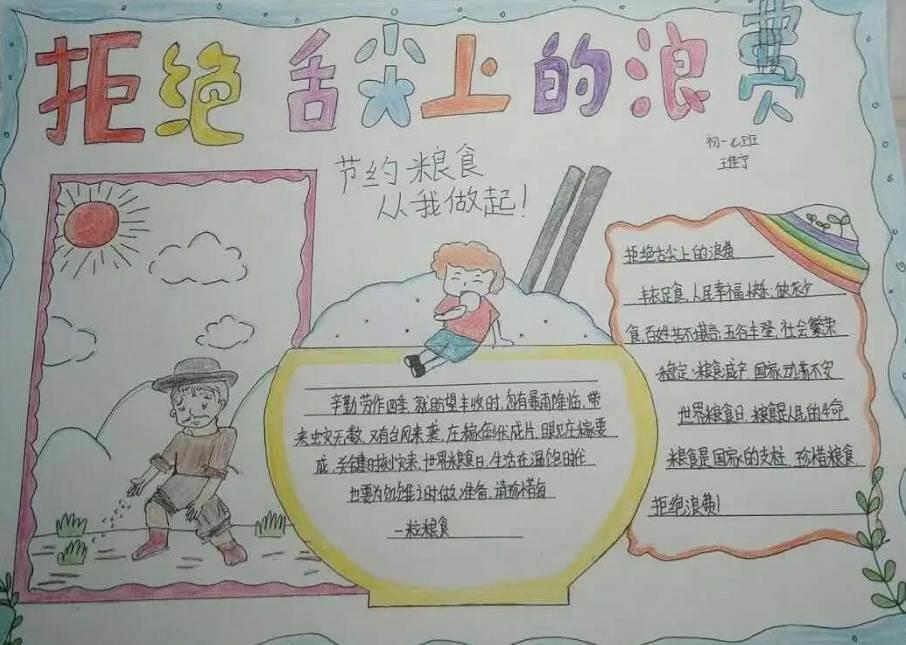 拒绝舌尖上的浪费
初一七班
节约粮食
从我做起!
拒绝舌尖上的浪费
丰衣足食,人民幸福快乐,缺衣少
食,百姓苦不堪言,五谷丰登,社会繁荣
稳定,粮食减产 国家动荡不安
世界粮食日,粮食是人民的生命,
粮食是国家的支柱,珍惜粮食,
拒绝浪费!
辛勤劳作四季,就盼望丰收时,忽有暴雨降临,带
来虫灾无数,又有台风来袭,庄稼倒伏成片,眼见庄稼要
成,关键时刻灾来,世界粮食日,生活在温饱时代
也要为饥饿之时做准备,请珍惜每
一粒粮食